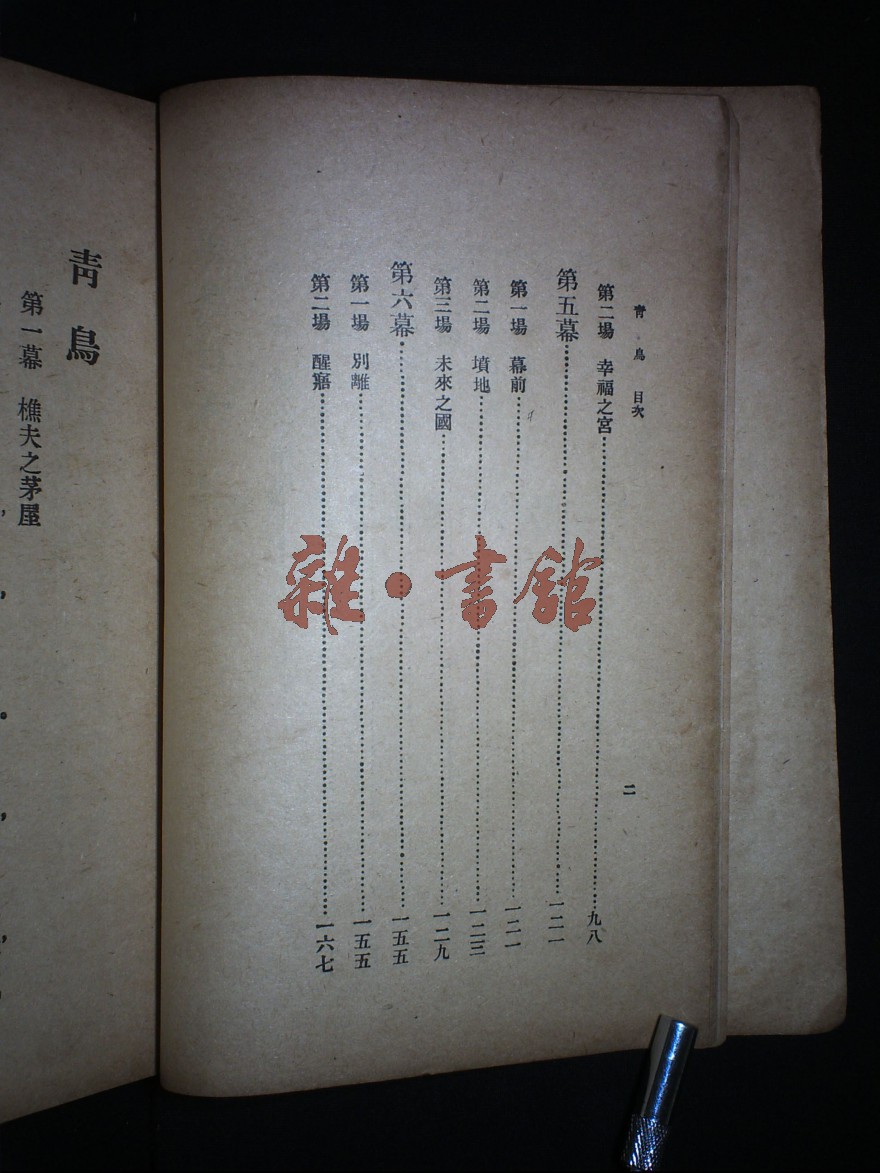 青鳥 目次
第二場 幸福之宮……九八
第五幕……一二一
第一場 幕前……一二一
第二場 墳地……一二三
第三場 未來之國……一二九
第六幕……一五五
第一場 別離……一五五
第二場 醒寤……一六七
二
青鳥
第一幕 樵夫之茅屋
雜·書館